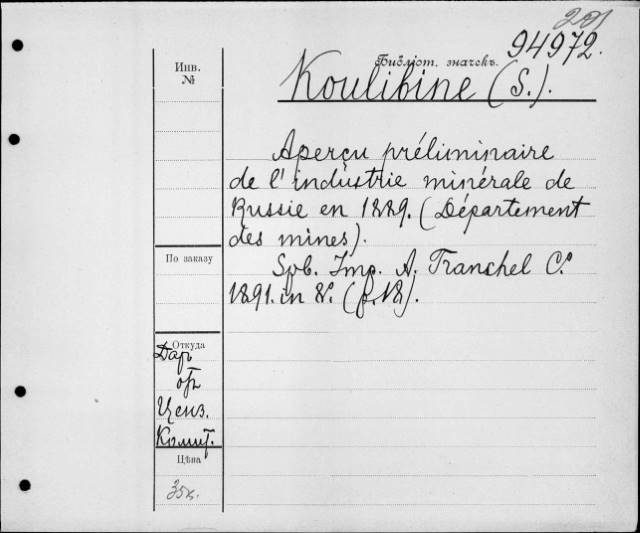 201
94972.
Библіот. значекъ.
Инв.
№
Koulibine (S.).
Aperçu préliminaire
de l'industrie minérale de
Russie en 1889. (Département
des mines).
По заказу
Spb. Imp. A. Tranchel C.
1891. in 8. (p. 18).
Откуда
Даръ
отъ
Ценз.
Комит.
Цѣна
35к.